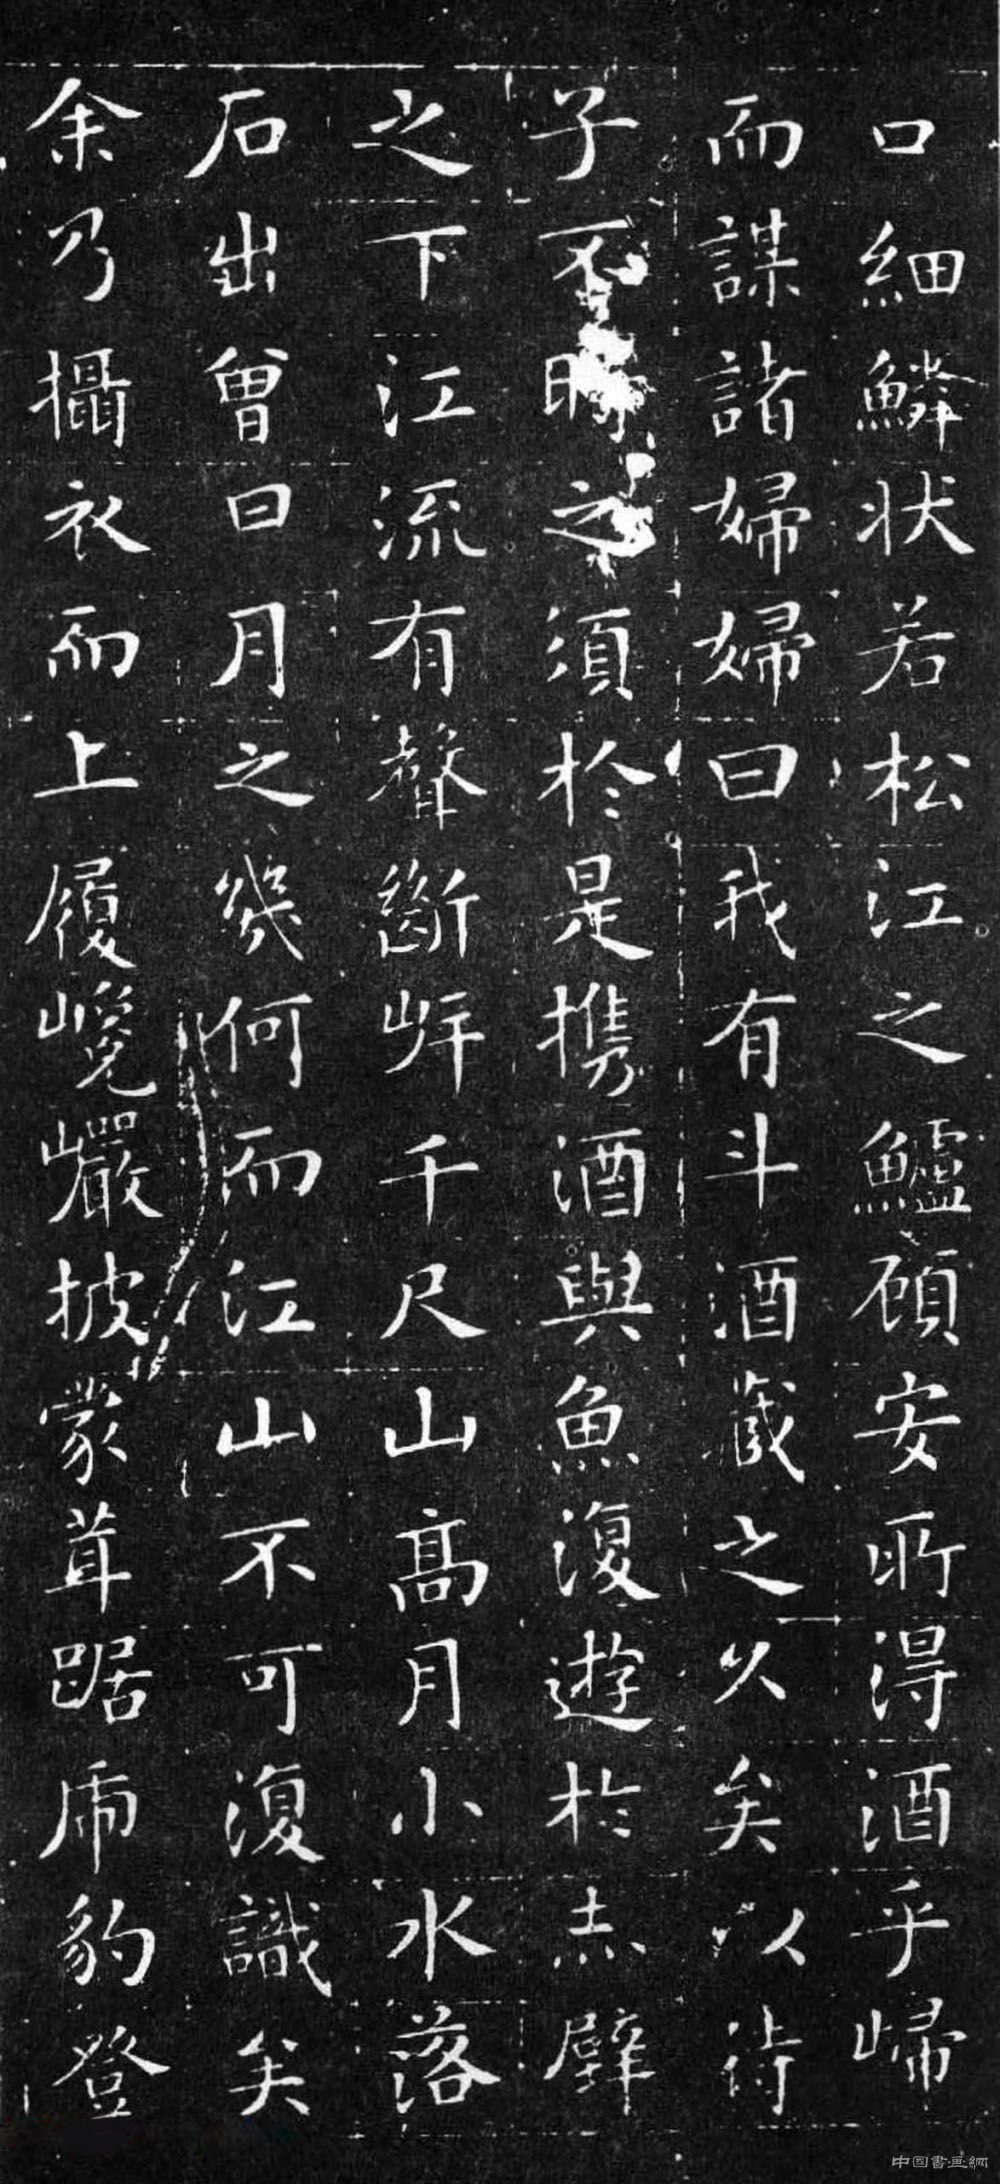 口細鱗状若松江之鱸顧安所得酒乎歸
而謀諸婦婦曰我有斗酒藏之久矣以待
子不時之須於是携酒與魚復遊於赤壁
之下江流有聲斷岸千尺山高月小水落
石出曾日月之幾何而江山不可復識矣
余乃攝衣而上履巉巖披蒙茸踞虎豹登
中国書画網